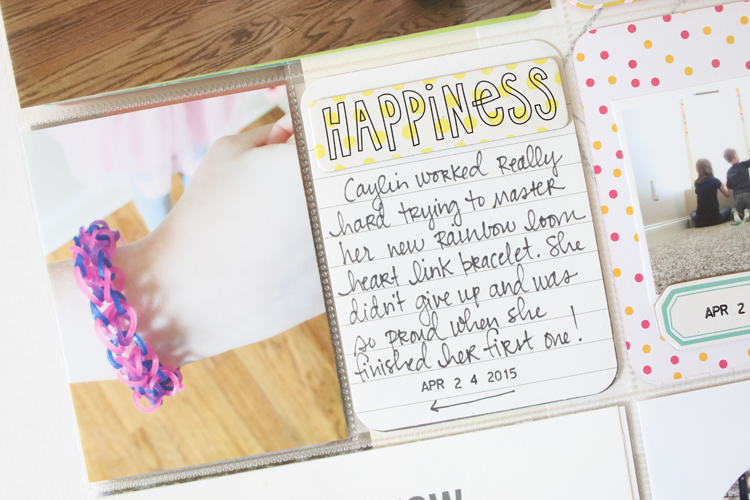 HAPPiNESS
Caylin worked really
hard trying to master
her new Rainbow loom
heart link bracelet. She
didn't give up and was
so proud when she
finished her first one!
APR 2 4 2015
APR 2